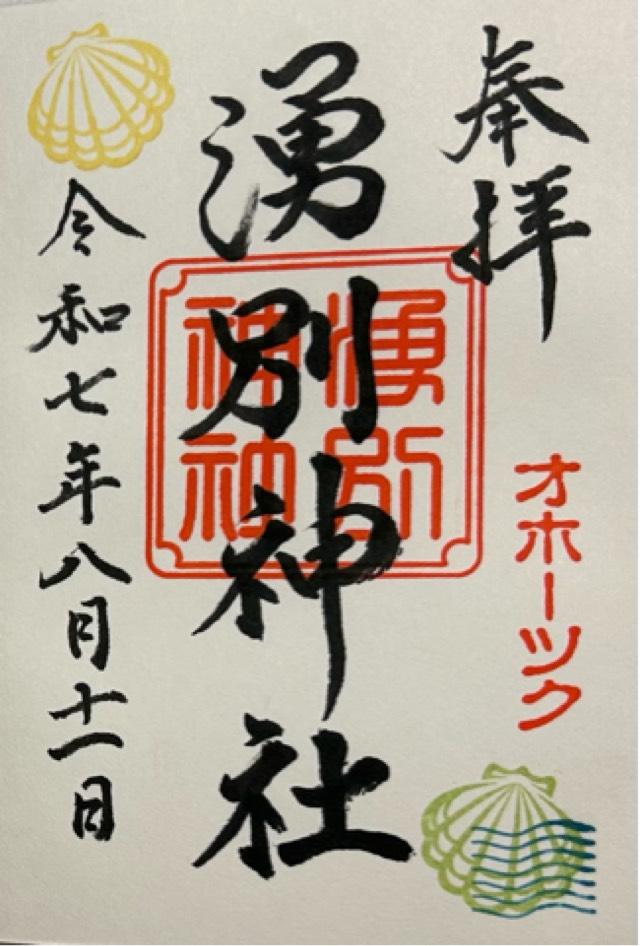 奉拝
オホーツク
湧別神社
湧別
神社
令和七年八月十一日